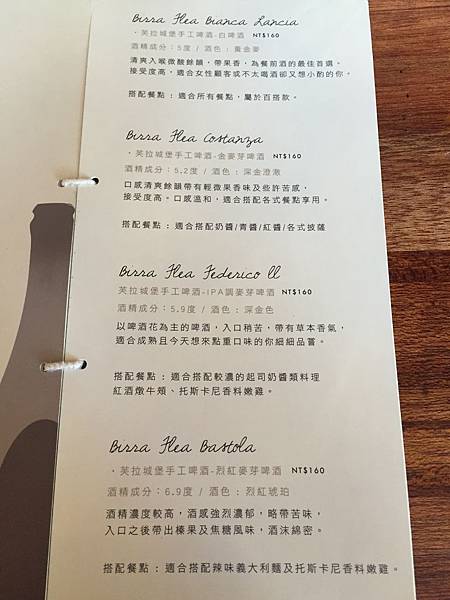 Birra Flea Bianca Lancia
・芙拉城堡手工啤酒-白啤酒 NT$160
酒精成分：5度 / 酒色：黃金麥
清爽入喉微酸餘韻，帶果香，為餐前酒的最佳首選。
接受度高，適合女性顧客或不太喝酒卻又想小酌的你。
搭配餐點：適合所有餐點，屬於百搭款。
Birra Flea Costanza
・芙拉城堡手工啤酒-金麥芽啤酒 NT$160
酒精成分：5.2度 / 酒色：深金澄澈
口感清爽餘韻帶有輕微果香味及些許苦感，
接受度高。口感溫和，適合搭配各式餐點享用。
搭配餐點：適合搭配奶醬/青醬/紅醬/各式披薩
Birra Flea Federico ll
芙拉城堡手工啤酒-IPA調麥芽啤酒 NT$160
酒精成分：5.9度 / 酒色：深金色
以啤酒花為主的啤酒，入口稍苦，帶有草本香氣，
適合成熟且今天想來點重口味的你細細品嘗。
搭配餐點：適合搭配較濃的起司奶醬類料理
紅酒燉牛頰、托斯卡尼香料嫩雞。
Birra Flea Bastola
・芙拉城堡手工啤酒-烈紅麥芽啤酒 NT$160
酒精成分：6.9度 / 酒色：烈紅琥珀
酒精濃度較高，酒感強烈濃郁，略帶苦味，
入口之後帶出榛果及焦糖風味，酒沫綿密。
搭配餐點：適合搭配辣味義大利麵及托斯卡尼香料嫩雞。